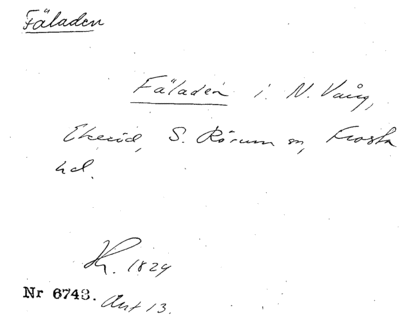 Fäladen
Fäladen i N. Vång,
Ekerid, S. Rörum sn, Frosta
hd.
Kr. 1824
Nr 6743. Akt 13.